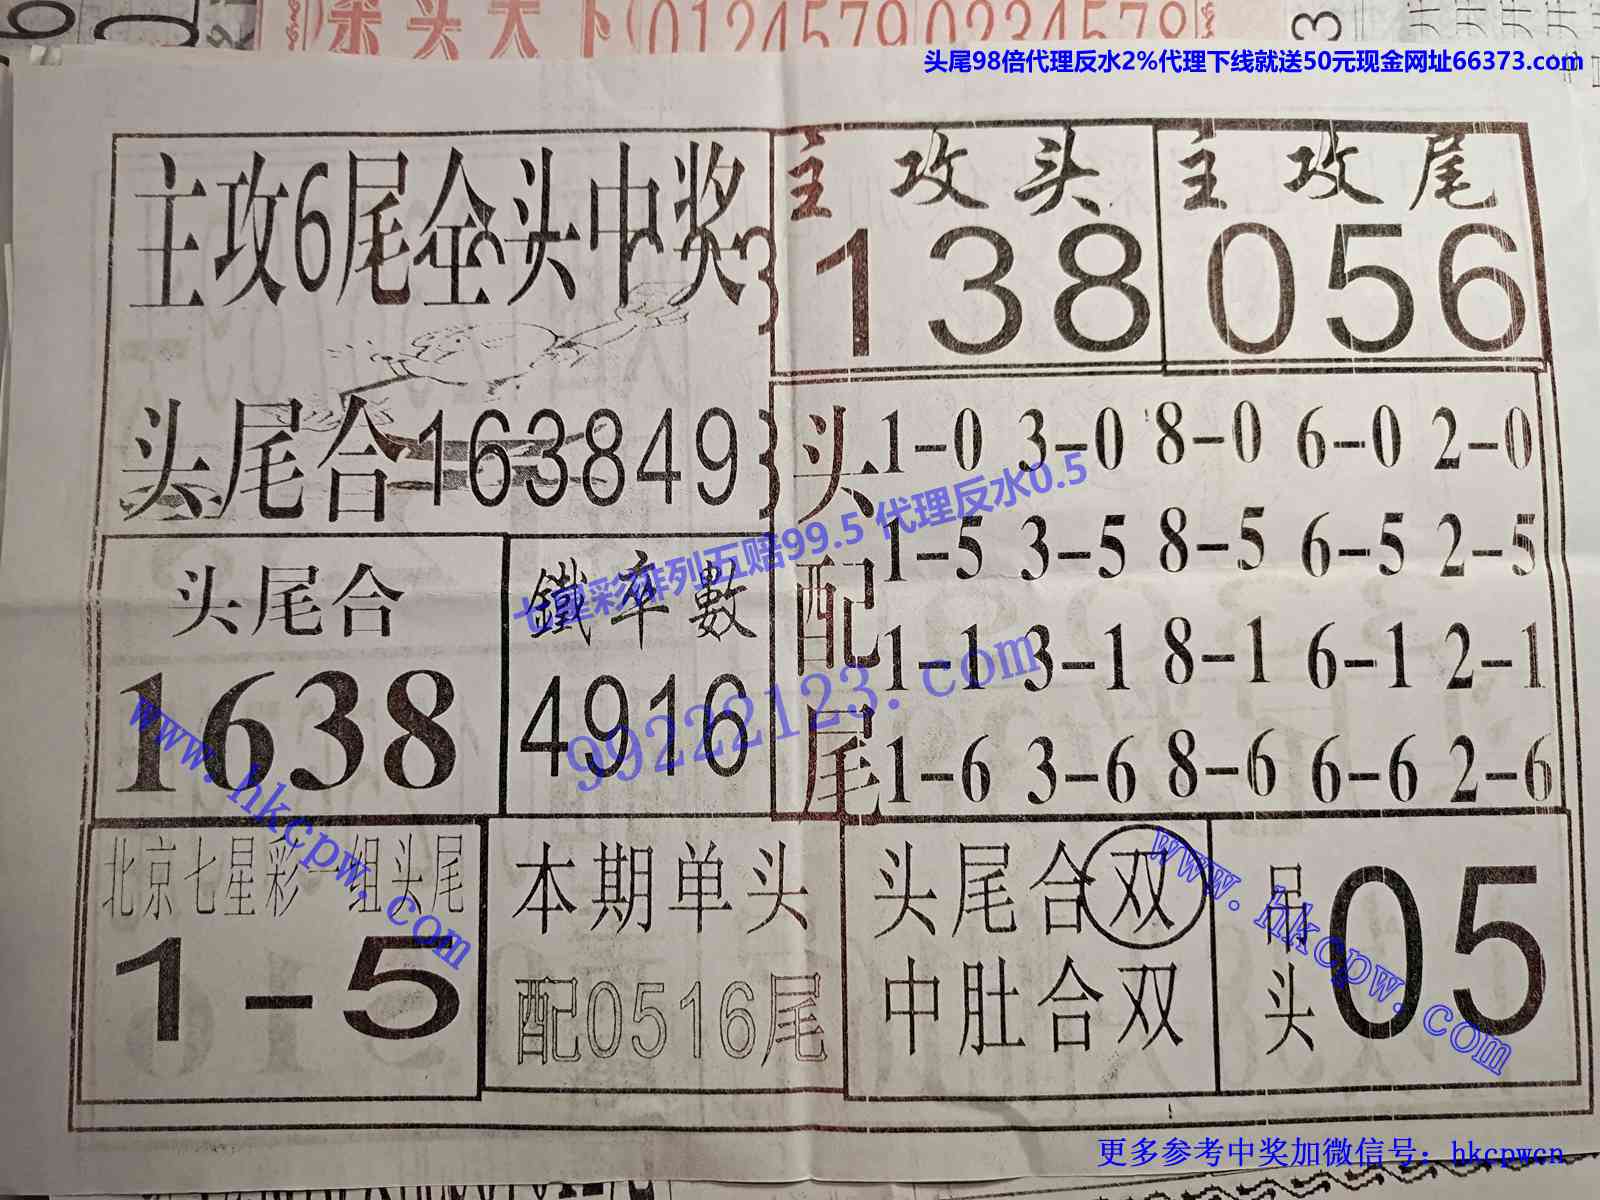 杀头天下 0124579 0234578
3
头尾98倍代理反水2%代理下线就送50元现金网址66373.com
主攻6尾全头中奖
主攻头
138
主攻尾
056
头尾合163849
头配尾
1-0 3-0 8-0 6-0 2-0
1-5 3-5 8-5 6-5 2-5
1-1 3-1 8-1 6-1 2-1
1-6 3-6 8-6 6-6 2-6
七星彩排列五赔99.5 代理反水0.5
头尾合
1638
鐵卒數
4916
99222123.com
www.hkcpw.com
北京七星彩一组头尾
1-5
本期单头
配0516尾
头尾合双
中肚合双
吊头
05
www.hkcpw.com
更多参考中奖加微信号：hkcpwcn